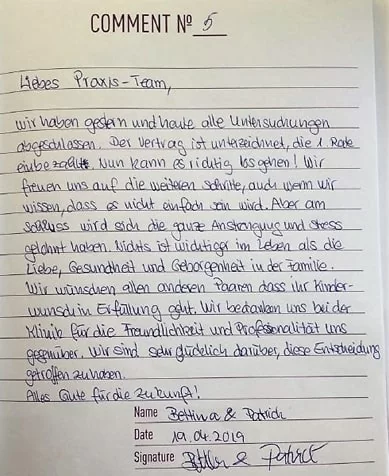 COMMENT Nº 5
Liebes Praxis-Team,
wir haben gestern und heute alle Untersuchungen
abgeschlossen. Der Vertrag ist unterzeichnet, die 1. Rate
einbezahlt. Nun kann es richtig losgehen! Wir
freuen uns auf die weiteren Schritte, auch wenn wir
wissen, dass es nicht einfach sein wird. Aber am
Schluss wird sich die ganze Anstrengung und Stress
gelohnt haben. Nichts ist wichtiger im Leben als die
Liebe, Gesundheit und Geborgenheit in der Familie.
Wir wünschen allen anderen Paaren dass ihr Kinder-
wunsch in Erfüllung geht. Wir bedanken uns bei der
Klinik für die Freundlichkeit und Professionalität uns
gegenüber. Wir sind sehr glücklich darüber, diese Entscheidung
getroffen zu haben.
Alles Gute für die Zukunft!
Name Bettina & Patrick
Date 19.04.2019
Signature Bettina & Patrick